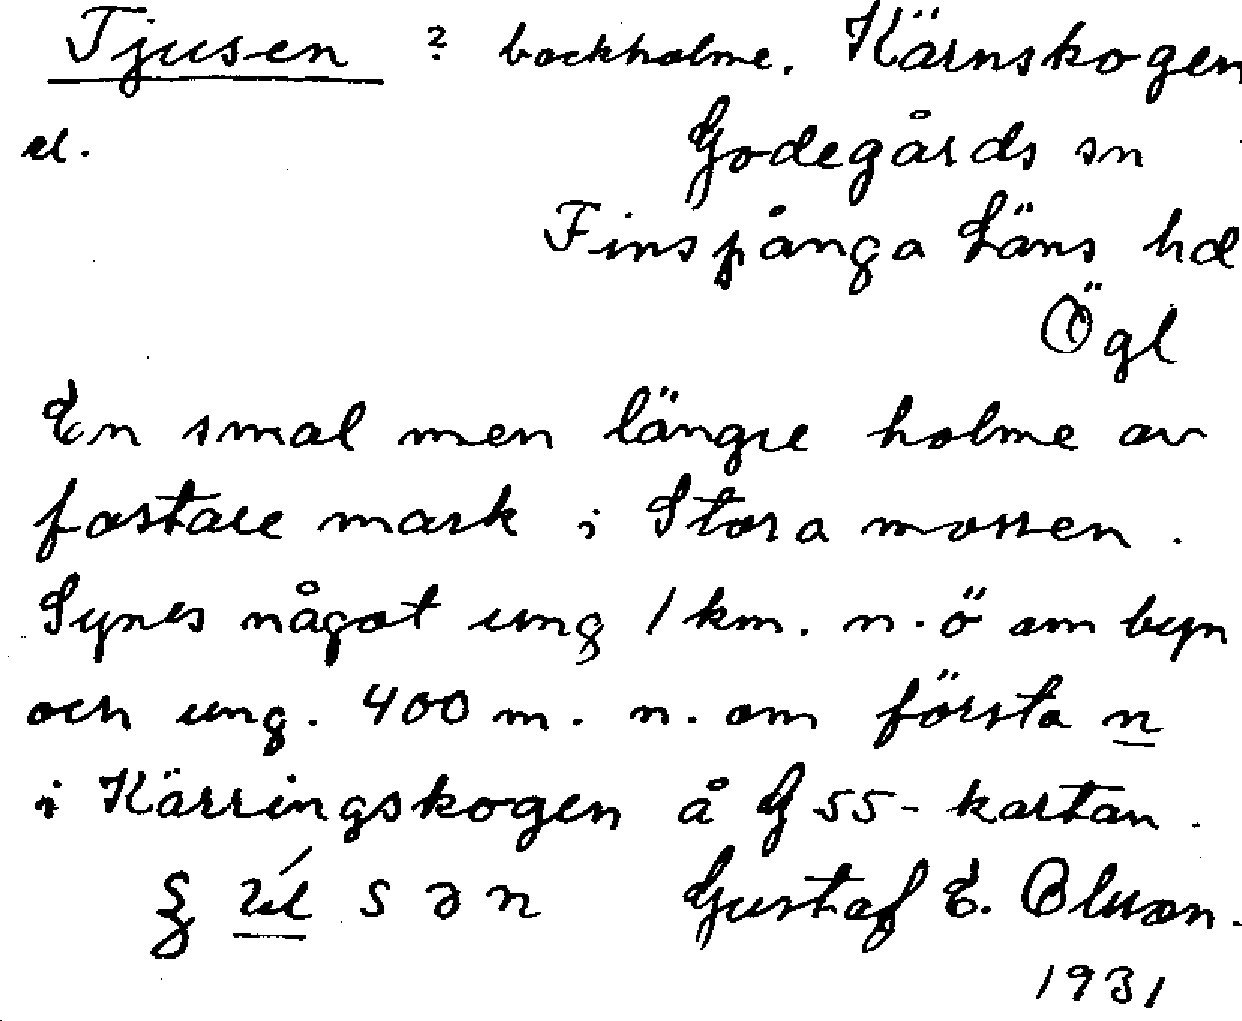 Tjusen ? backholme. Kärnskogen
el. Godegårds sn
Finspånga Läns hd
Ögl
En smal men längre holme av
fastare mark i Stora mossen.
Synes något ung 1 km. n.ö om byn
och ung. 400 m. n. om första n
i Kärringskogen å G 55-kartan.
sən Gustaf E. Olsson.
1931